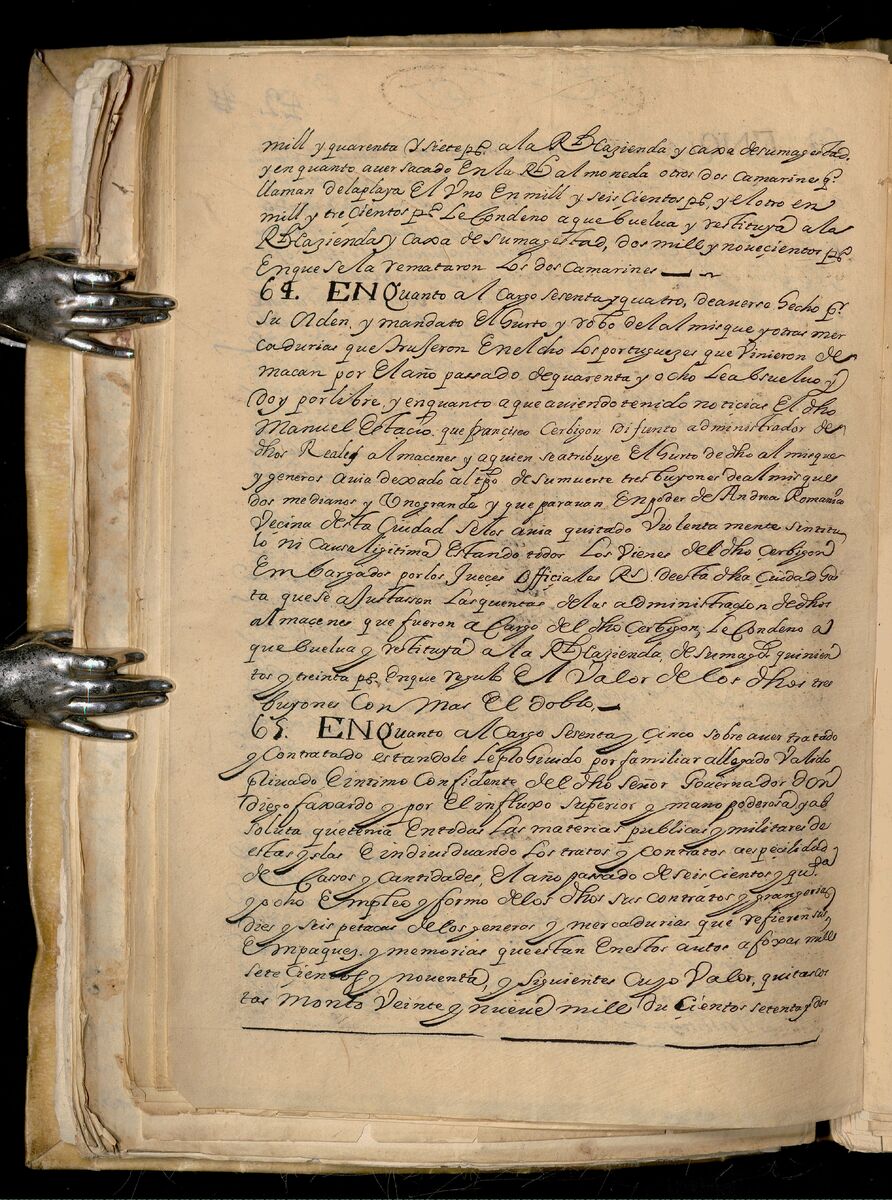 mill y quarenta y siete ps. a la Rl. Hazienda y caxa de su magestad,
y en quanto a uer sacado En la Rl. almoneda otros dos Camarines q.
llaman de la playa El Vno En mill y seis Cientos ps. y el otro en
mill y treçientos ps. Le Condeno a que buelua y restituya a la
Rl. Hazienda y Caxa de su magestad, dos mill y noueçientos ps.
En que se la remataron Los dos Camarines
64. ENQuanto al Cargo sesenta y quatro, de auerse hecho pr.
su orden, y mandato El hurto y robo del almisque y otras mer
cadurias que truxeron En el dho Los portuguezes que Vinieron de
macan por El año passado de quarenta y ocho Le absueluo y
doy por libre, y en quanto a que auiendo tenido noticias El dho
Manuel Estacio que françisco Cerbigon difunto administrador de
dhos Reales almacenes y a quien se atribuye El hurto de dho almisque
y generos auia dexado al tpo. de su muerte tres buyones de almisque
dos medianos y Vno grande y que parauan En poder de Andrea Romanico
Vecina desta Ciudad se los auia quitado Violenta mente sin titu
lo ni Causa ligitima Estando todos Los Vienes del dho Cerbigon
Embargados por los Jueces offiçiales Rs. de esta dha Ciudad has
ta que se ajustassen Las quentas de la administraçion de dhos
almacenes que fueron a Cargo del dho Cerbigon, Le Condeno a
que buelua y restituya a la Rl. Hazienda, de su magd. quinien
tos y treinta ps. En que regulo El Valor de los dhos tres
buyones Con mas El doblo,
65. ENQuanto al Cargo sesenta y Cinco sobre auer tratado
y Contratado estandole prohiuido por familiar allegado Valido
priuado E intimo Confidente del dho señor Gouernador don
diego faxardo y por El influxo superior y mano poderosa y ab
soluta que tenia En todas Las materias publicas y militares de
estas yslas E indiuiduando Los tratos y Contratos a espeçilidad
de Cassos y Cantidades, El año passado de seis Cientos y qua.
y ocho Empleo y formo de los dhos sus contratos y grangerias
dies y seis petacas de los generos y mercadurias que refieren sus
Empaques y memorias que estan En estos autos a foxas mill
sete Çientos y nouenta, y siguientes Cuyo Valor, quitas cos
tas monto Veinte y nueue mill du Çientos setenta y dos